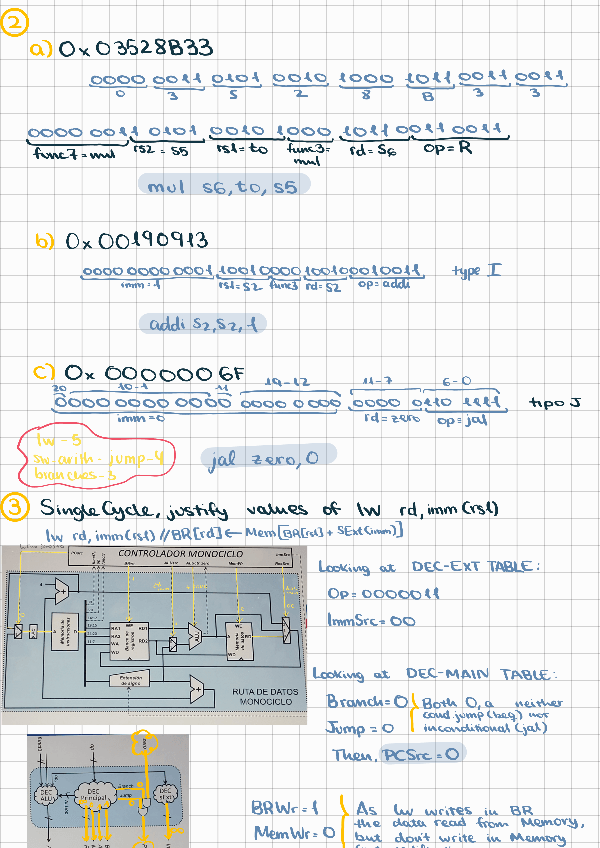 2
a) 0x03528B33
0000 0011 0101 0010 1000 1011 0011 0011
0 3 5 2 8 B 3 3
0000 0011 0101 0010 1000 1011 0011 0011
func7=mul rs2=s5 rs1=t0 func3=mul rd=s6 op=R
mul s6,t0,s5
b) 0x00190913
0000 0000 0001 1001 0000 1001 0001 0011 type I
imm=1 rs1=s2 func3 rd=s2 op=addi
addi s2,s2,1
c) 0x0000006F
20 10-1 11 19-12 11-7 6-0
0000 0000 0000 0000 0000 0000 0110 1111 tipo J
imm=0 rd=zero op=jal
lw-5
sw-arith-jump-4
branches-3
jal zero,0
3 Single Cycle, justify values of lw rd, imm(rs1)
lw rd, imm(rs1) //BR[rd] ← Mem[BR[rs1] + SExt(imm)]
CONTROLADOR MONOCICLO
RUTA DE DATOS
MONOCICLO
Looking at DEC-EXT TABLE:
Op=0000011
ImmSrc=00
Looking at DEC-MAIN TABLE:
Branch=0 Both 0, a neither
Jump=0 cond jump (beq) nor
inconditional (jal)
Then, PCSrc=0
DEC ALU
DEC Principal
Branch
Jump
BRWr=1 As lw writes in BR
the data read from Memory,
MemWr=0 but don't write in Memory